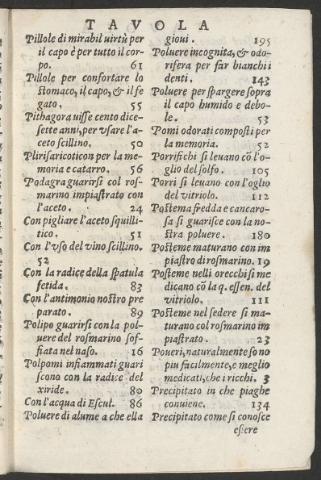 TAVOLA
Pillole di mirabil uirtù per
il capo è per tutto il cor-
po. 61
Pillole per confortare lo
stomaco, il capo, & il fe
gato. 55
Pithagora uisse cento dice-
sette anni, per vsare l'a-
ceto scillino. 50
Plirisaricoticon per la me-
moria e catarro. 56
Podagra guarirsi col ros-
marino impiastrato con
l'aceto. 24
Con pigliare l'aceto squilli-
tico. 51
Con l'vso del vino scillino.
52
Con la radice della spatula
fetida. 83
Con l'antimonio nostro pre
parato. 89
Polipo guarirsi con la pol-
uere del rosmarino sof-
fiata nel naso. 16
Polpomi infiammati guari
scono con la radice del
xiride. 80
Con l'acqua di Escul. 86
Poluere di alume a che ella
gioui. 195
Poluere incognita, & odo-
rifera per far bianchi i
denti. 143
Poluere per spargere sopra
il capo humido e debo-
le. 53
Pomi odorati composti per
la memoria. 52
Porrifichi si leuano cō l'o-
glio del solfo. 105
Porri si leuano con l'oglio
del vitriolo. 112
Postema fredda e cancaro-
sa si guarisce con la no-
stra poluere. 180
Posteme maturano con im
piastro di rosmarino. 19
Posteme nelli orecchi si me
dicano cō la q. essen. del
vitriolo. 111
Posteme nel sedere si ma-
turano col rosmarino im
piastrato. 23
Poueri, naturalmente sono
piu facilmente, e meglio
medicati, che i ricchi. 3
Precipitato in che piaghe
conuiene. 134
Precipitato come si conosce
essere